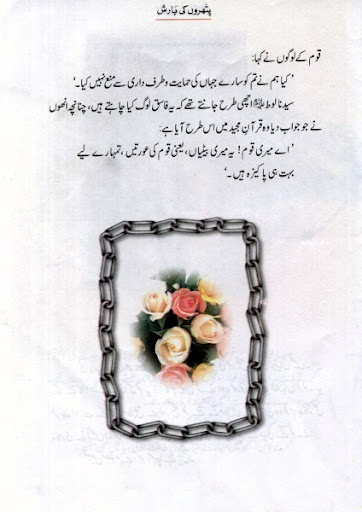 پتھروں کی بارش
قوم کے لوگوں نے کہا:
’کیا ہم نے تم کو سارے جہاں کی حمایت و طرف داری سے منع نہیں کیا۔‘
سیدنا لوط علیہ السلام اچھی طرح جانتے تھے کہ یہ فاسق لوگ کیا چاہتے ہیں، چنانچہ انھوں
نے جو جواب دیا وہ قرآنِ مجید میں اس طرح آیا ہے:
’اے میری قوم! یہ میری بیٹیاں، یعنی قوم کی عورتیں، تمہارے لیے
بہت ہی پاکیزہ ہیں۔‘